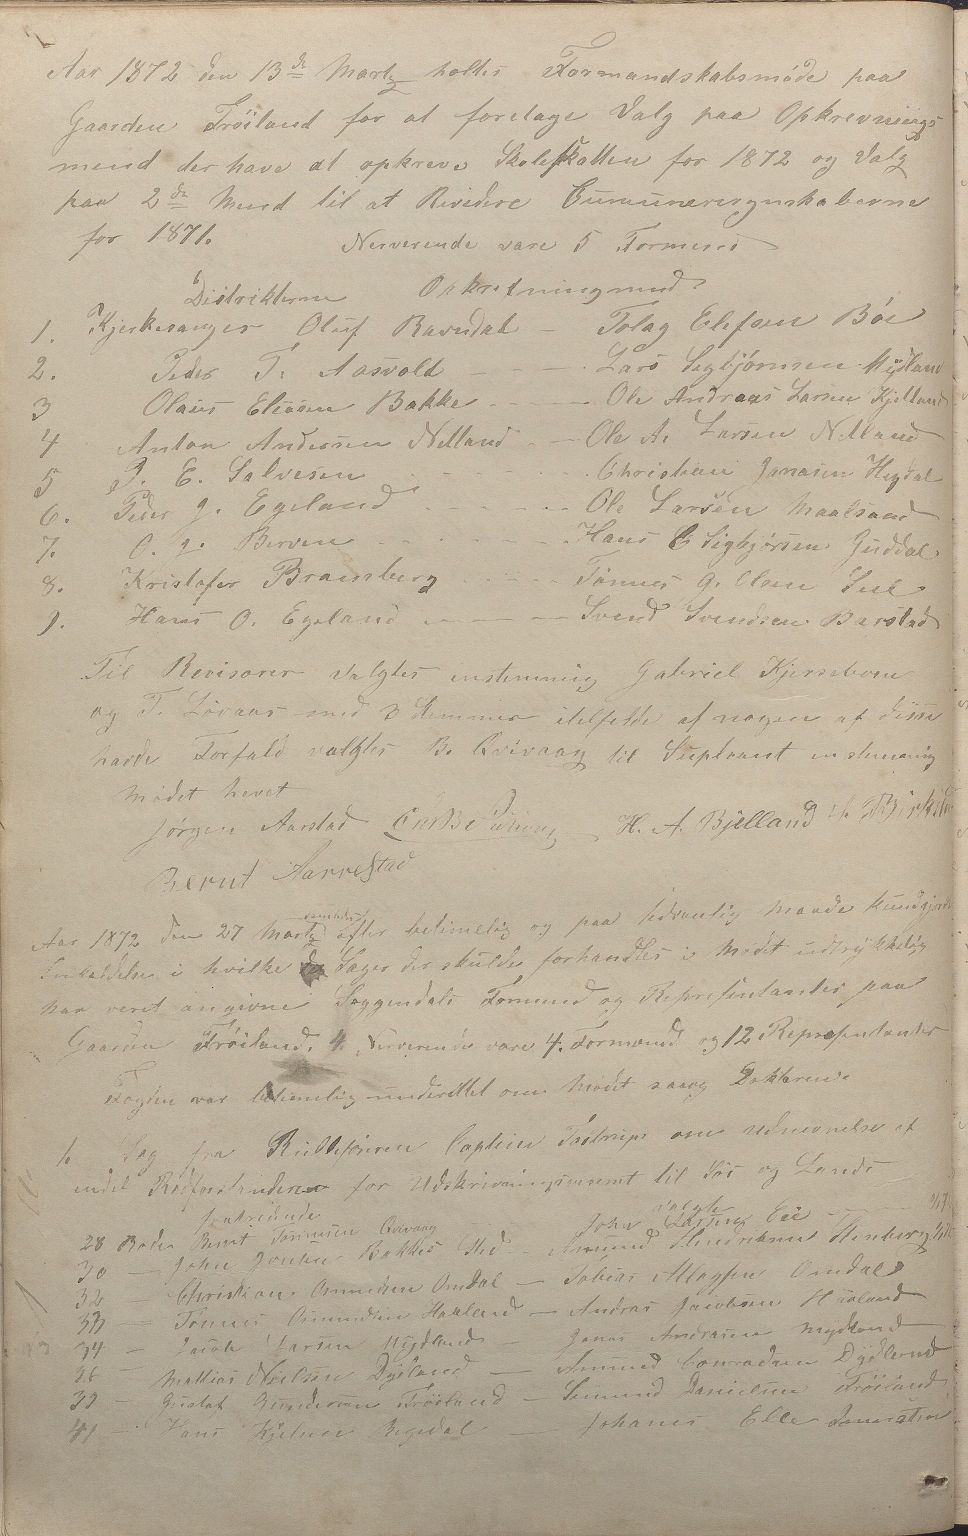 Aar 1872 den 13de Martz holtes Formandskabsmöde paa
Gaarden Fröiland for at foretage Valg paa Opkrevnings
mend der have at opkreve Skoleskatten for 1872 og Valg
paa 2de Mend til at Revidere
for 1871. Nerverende vare 5 Formend
Distrikterne Opkrevningmend
1. Kjerkesanger Oluf Ravndal - Tolag Elefsen Böe
2. Peder T. Aasvold - - - Lars Sigbjörnsen Mydland
3 Olaus Eliasen Bakke - - - Ole Andreas Larsen Kjelland
4 Anton Andersen Netland - - Ole A. Larsen Netland
5 P. E. Salvesen - - - - Christian Jonasen Hegdal
6. Peder J. Egeland - - - - Ole Larsen Maalsand
7. O. J. Berven - - - - Hans E Sigbjørsen Guddal
8. Kristofer Bramberg - - - Tönnes G. Olsen
9. Hans O. Egeland - - - Svend Svendsen Barstad
Til Revisorer valgtes enstemmig Gabriel
og T. Lövaas med 3 Stemmer af nogen af disse
havde Forfald valgtes B. Qvivaag til Supleant enstemmig
Mödet hevet
Jörgen Aarstad H. A. Bjelland
Bernt Aarrestad
Aar 1872 den 27 Martz efter betimelig og paa sedvanlig Maade kundgjort
Indkaldelse i hvilke de Sager der skulde forhandles i Mödet udtrykkelig
har veret angivne Soggendals Formend og Representanter paa
Gaarden Fröiland. Nerverende vare 4. Formend og 12 Representanter
Fogden var betimelig underettet om Mödet saaog Doktoren.
1. Sag fra Captein om udnevnelse af
endel for Udskrivningsvesenet til Söes og Lands
fratredende valgte
28 Rode Bernt Tönnesen Qvivaag John Larsen Eie
30 — John Jonsen Bakkes Hed - Amund Hendriksen Stenberg
32 — Christian Omundsen Omdal — Tobias Omdal
33 — Tönnes Omundsen Haaland — Andras Jacobsen Haaland
34 — Jacob Larsen Mydland — Jonas Andrasen Mydland
36 Mathias Nielsen Dydland — Amund Conradsen Dydland
39 — Gustaf Gundersen Fröiland — Simund Danielsen Fröiland
41 — Hans Regedal — Johanes